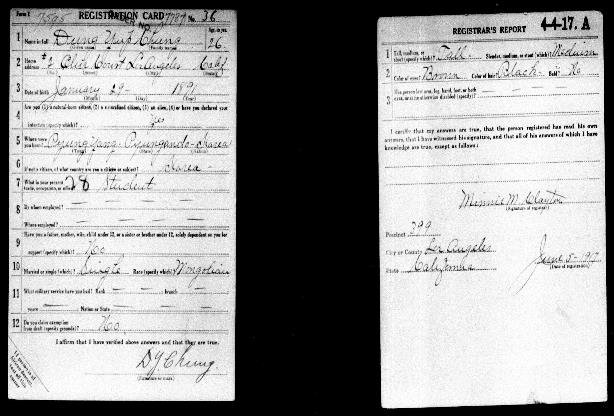 Form 1 7595 REGISTRATION CARD 7787 No. 36
1 Name in full Dung Yup Chung Age, in yrs. 26
(Given name) (Family name)
2 Home address #2 Click Court Los Angeles Calif
(No.) (Street) (City) (State)
3 Date of birth January 29 - 1891
(Month) (Day) (Year)
4 Are you (1) a natural-born citizen, (2) a naturalized citizen, (3) an alien, (4) or have you declared your
intention (specify which)?
5 Where were you born? Pyung Yang Pyungando - Korea
(Town) (State) (Nation)
6 If not a citizen, of what country are you a citizen or subject? Korea -
7 What is your present trade, occupation, or office? 28 Student
8 By whom employed?
Where employed?
9 Have you a father, mother, wife, child under 12, or a sister or brother under 12, solely dependent on you for
support (specify which)? No
10 Married or single (which)? Single Race (specify which)? Mongolian
11 What military service have you had? Rank branch
years Nation or State
12 Do you claim exemption from draft (specify grounds)? No
I affirm that I have verified above answers and that they are true.
D Y Chung
(Signature or mark)
REGISTRAR'S REPORT 4-4-17. A
1 Tall, medium, or short (specify which)? Tall Slender, medium, or stout (which)? Medium
2 Color of eyes? Brown Color of hair? Black Bald? No
3 Has person lost arm, leg, hand, foot, or both eyes, or is he otherwise disabled (specify)?
I certify that my answers are true, that the person registered has read his own
answers, that I have witnessed his signature, and that all of his answers of which I have
knowledge are true, except as follows:
Minnie M. Clayton
(Signature of registrar)
Precinct 299
City or County Los Angeles
State California
June 5 - 1917
(Date of registration)